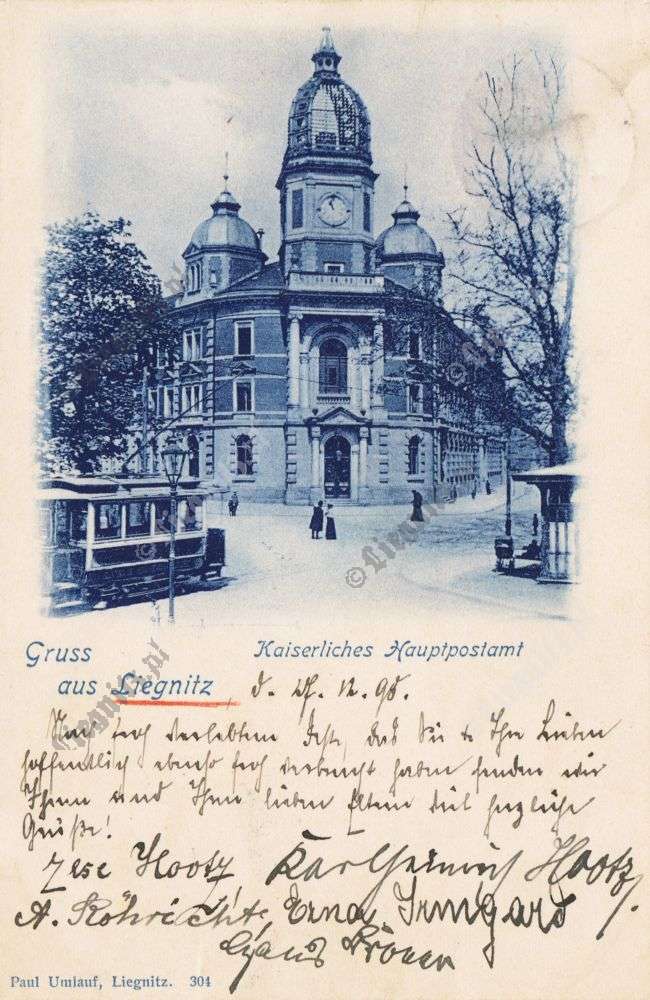 Gruss
aus Liegnitz
Kaiserliches Hauptpostamt
d. 27. 12. 98.
Nach froh verlebtem Fest, das Sie u. Ihre Lieben
hoffentlich ebenso froh verbracht haben senden wir
Ihnen und Ihren lieben Eltern viel herzliche
Grüße!
Hootz, Karl Heinrich Hootz
A. Röhricht, Erna, Irmgard
Paul Umlauf, Liegnitz. 304
© Liegnitz.pl